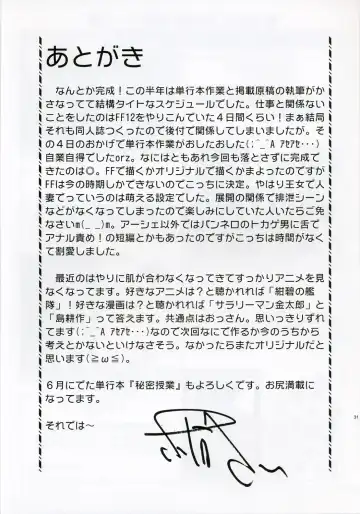 あとがき
なんとか完成！この半年は単行本作業と掲載原稿の執筆がか
さなってて結構タイトなスケジュールでした。仕事と関係ない
ことをしたのはFF12をやりこんでいた４日間くらい！まぁ結局
それも同人誌つくったので後付で関係してしまいましたが。そ
の４日のおかげで単行本作業がおしたおした(;^_^A ｱｾｱｾ･･･)
自業自得でしたorz。なにはともあれ今回も落とさずに完成で
きたのは◎。FFで描くかオリジナルで描くかまよったのですが
FFは今の時期しかできないのでこっちに決定。やはり王女で人
妻でっていうのは萌える設定でした。展開の関係で排泄シーン
などがなくなってしまったので楽しみにしていた人いたらご免
なさいm(_ _)m。アーシェ以外ではパンネロのトカゲ男に舌で
アナル責め！の短編とかもあったのですがこっちは時間がなく
て割愛しました。
最近のはやりに肌が合わなくなってきてすっかりアニメを見
なくなってます。好きなアニメは？と聴かれれば「紺碧の艦
隊」！好きな漫画は？と聴かれれば「サラリーマン金太郎」と
「島耕作」って答えます。共通点はおっさん。思いっきりずれ
てます(;^_^A ｱｾｱｾ･･･)なので次回なにて作るか今のうちから
考えとかないといけなさそう。なかったらまたオリジナルだと
思います(≧ω≦)。
６月にでた単行本『秘密授業』もよろしくです。お尻満載に
なってます。
それでは～
31